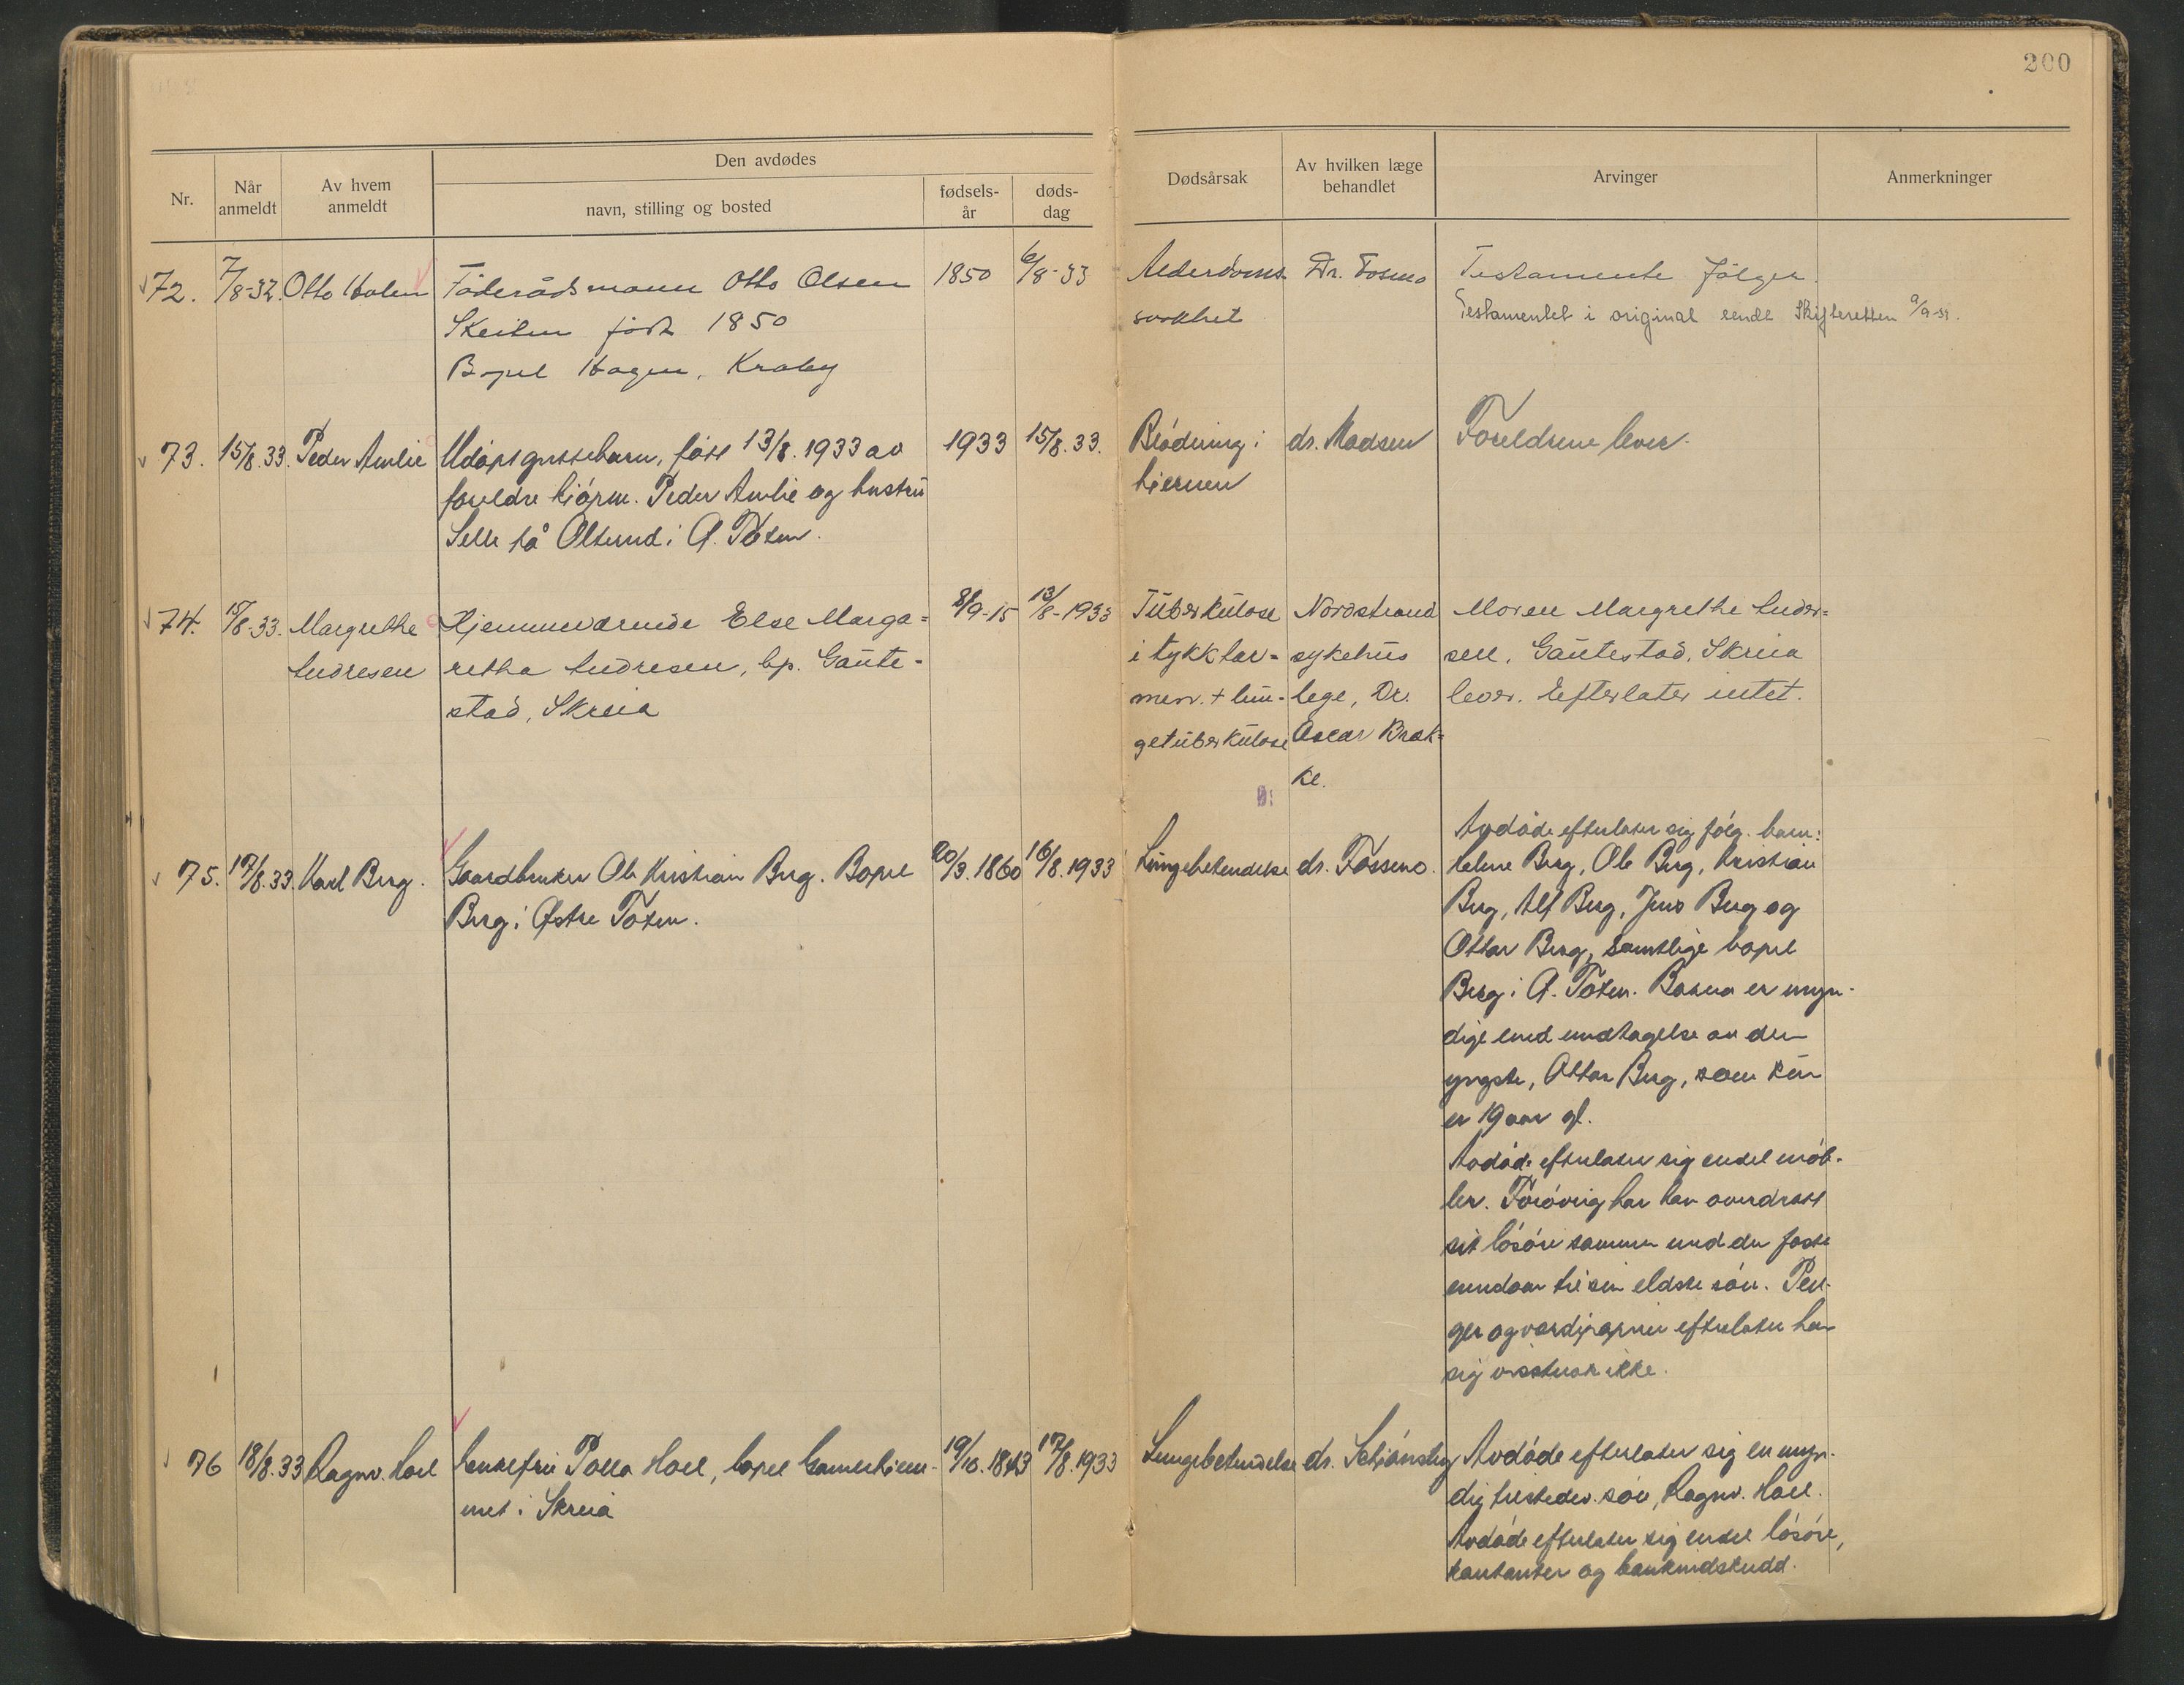 200
Nr.
Når
anmeldt
Av hvem
anmeldt
Den avdødes
navn, stilling og bosted
fødsels-
år
døds-
dag
Dødsårsak
Av hvilken læge
behandlet
Arvinger
Anmerkninger
72.
7/8-32.
Otto Holen
Föderådsmann Otto Olsen
Skeilen født 1850
Bopel Hagen, Kraby
1850
6/8-33
Alderdoms-
svakhet
Dr. Fosmo
Testamente følger
Testamentet i original sendt Skifteretten 9/9-33.
73.
15/8.33.
Peder Amlie
Udöpt guttebarn, født 13/8.1933 av
foreldre kjöpm. Peder Amlie og hustru
Selle på Ølterud i Ø. Toten.
1933
15/8.33.
Blödning i
hjernen
dr. Madsen
Foreldrene lever.
74.
15/8-33.
Margrethe
Andresen
Hjemmeværende Else Marga=
retha Andresen, bp. Gaute-
stad, Skreia
8/9-15
13/8-1933
Tuberkulose
i tykktar=
men. + lun-
getuberkulose
Nordstrand
sykehus
lege, Dr.
Oscar Brek=
ke.
Moren Margrethe Andre=
sen, Gautestad, Skreia
lever. Efterlater intet.
75.
17/8.33.
Karl Berg.
Gaardbruker Ole Kristian Berg. Bopel
Berg i Østre Toten.
20/3.1860
16/8.1933
Lungebetendelse
dr. Fossmo.
Avdöde efterlater sig fölg. barn:
Helene Berg, Ole Berg, Kristian
Berg, Alf Berg, Jens Berg og
Ottar Berg, samtlige bopel
Berg i Ø. Toten. Barna er myn-
dige med undtagelse av den
yngste, Ottar Berg, som kun
er 19 aar gl.
Avdöde efterlater sig endel möb-
ler. Forövrig har han overdratt
sit lösöre sammen med den faste
eiendom til sin eldste sön. Pen-
ger og verdipapirer efterlater han
sig visstnok ikke.
76
18/8.33
Ragnv. Hoel
Enkefru Polla Hoel, bopel Gamlehjem-
met i Skreia
19/10.1843
17/8.1933
Lungebetendelse
dr. Schiönsby
Avdöde efterlater sig en myn-
dig tilstedev. sön, Ragnv. Hoel.
Avdöde efterlater sig endel lösöre,
kontanter og bankindskudd.